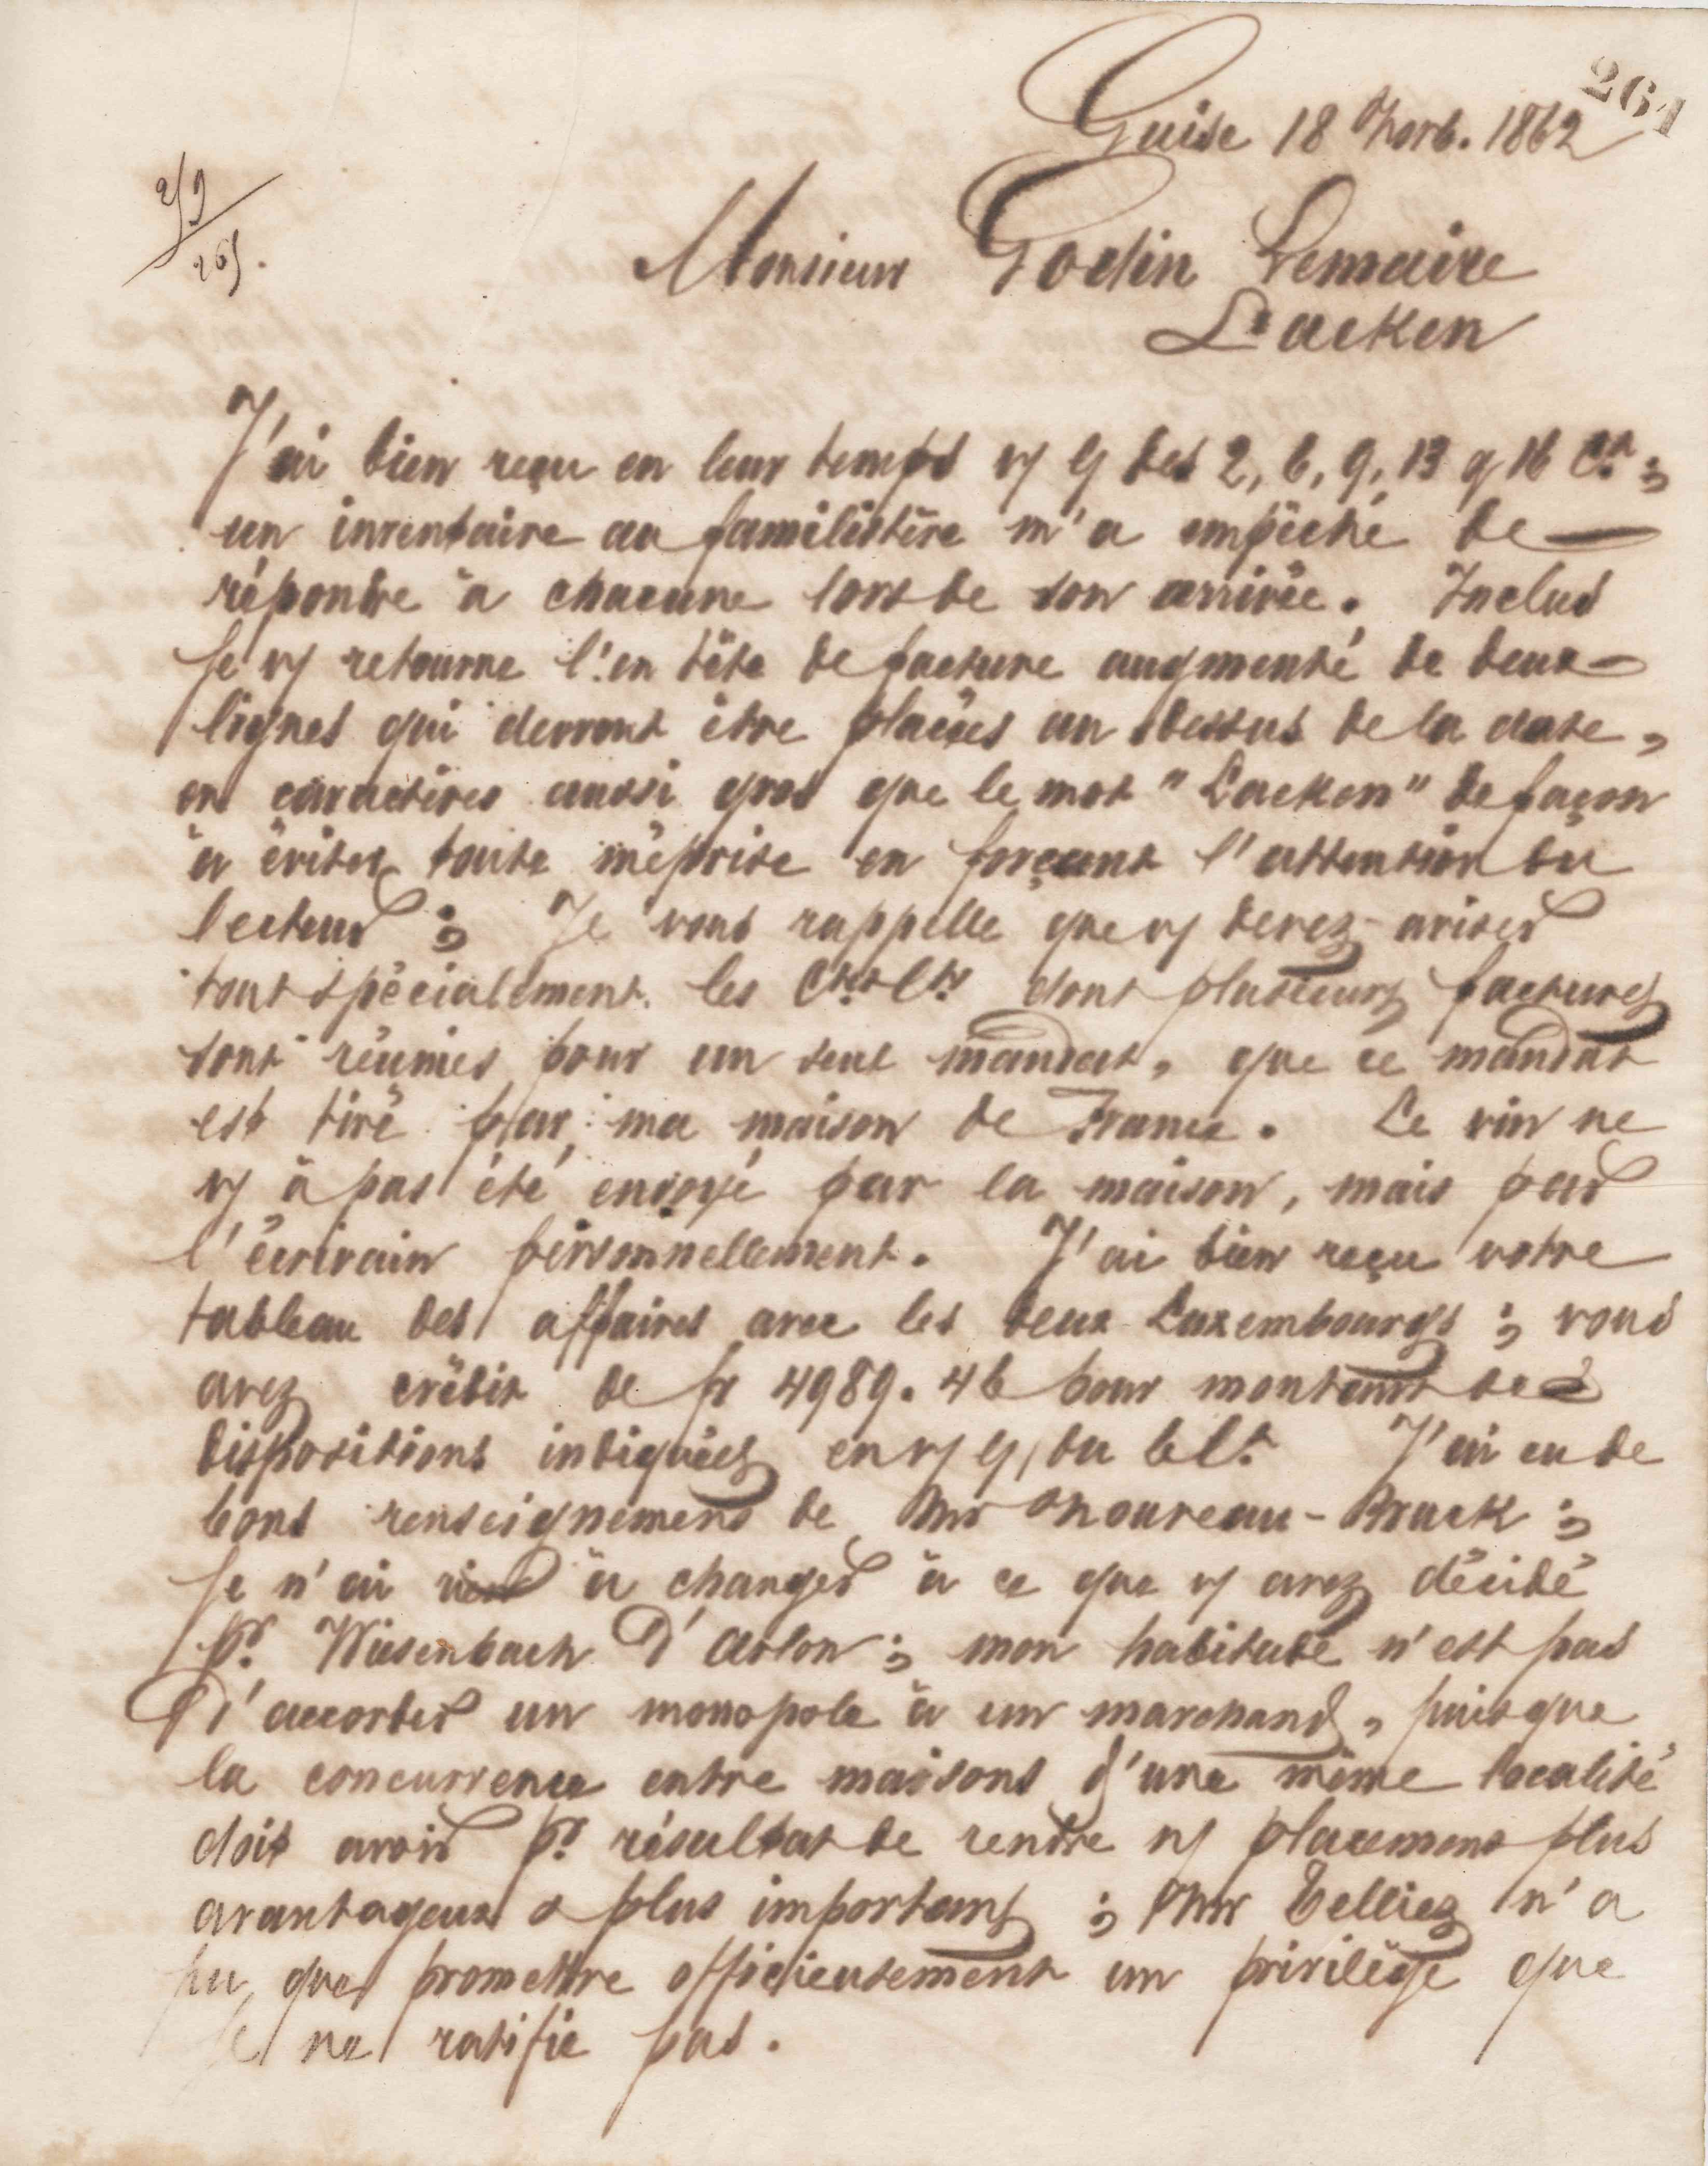 261
Guise 18 9bre. 1862
259
265.
Monsieur Godin Lemaire
Laeken
J'ai bien reçu en leur temps vs ls des 2, 6, 9, 13 & 16 Ct ;
un inventaire au familistère m'a empêché de
répondre à chacune lors de son arrivée. Inclus
je vs retourne l'en tête de facture augmenté de deux
lignes qui devront être placées au dessus de la date,
en caractères aussi gros que le mot "Laeken" de façon
à éviter toute méprise en forçant l'attention du
lecteur ; Je vous rappelle que vs devez aviser
tout spécialement les Cts dont plusieurs factures
sont réunies pour un seul mandat, que ce mandat
est tiré par ma maison de France. Le vin ne
vs à pas été envoyé par la maison, mais par
l'écrivain personnellement. J'ai bien reçu votre
tableau des affaires avec les deux Luxembourgs ; vous
avez crédit de fr 4989.46 pour montant de
dispositions indiquées en vs l du 6 Ct. J'ai eu de
bons renseignements de Mr Noureau-Bruck ;
je n'ai rien à changer à ce que vs avez décidé
pr. Wiesenbach D'Arlon ; mon habitude n'est pas
D'accorder un monopole à un marchand, puisque
la concurrence entre maisons d'une même localité
doit avoir pr. résultat de rendre ns placement plus
avantageux & plus important ; Mr Telliez n'a
pu que promettre officieusement un privilège que
je ne ratifie pas.